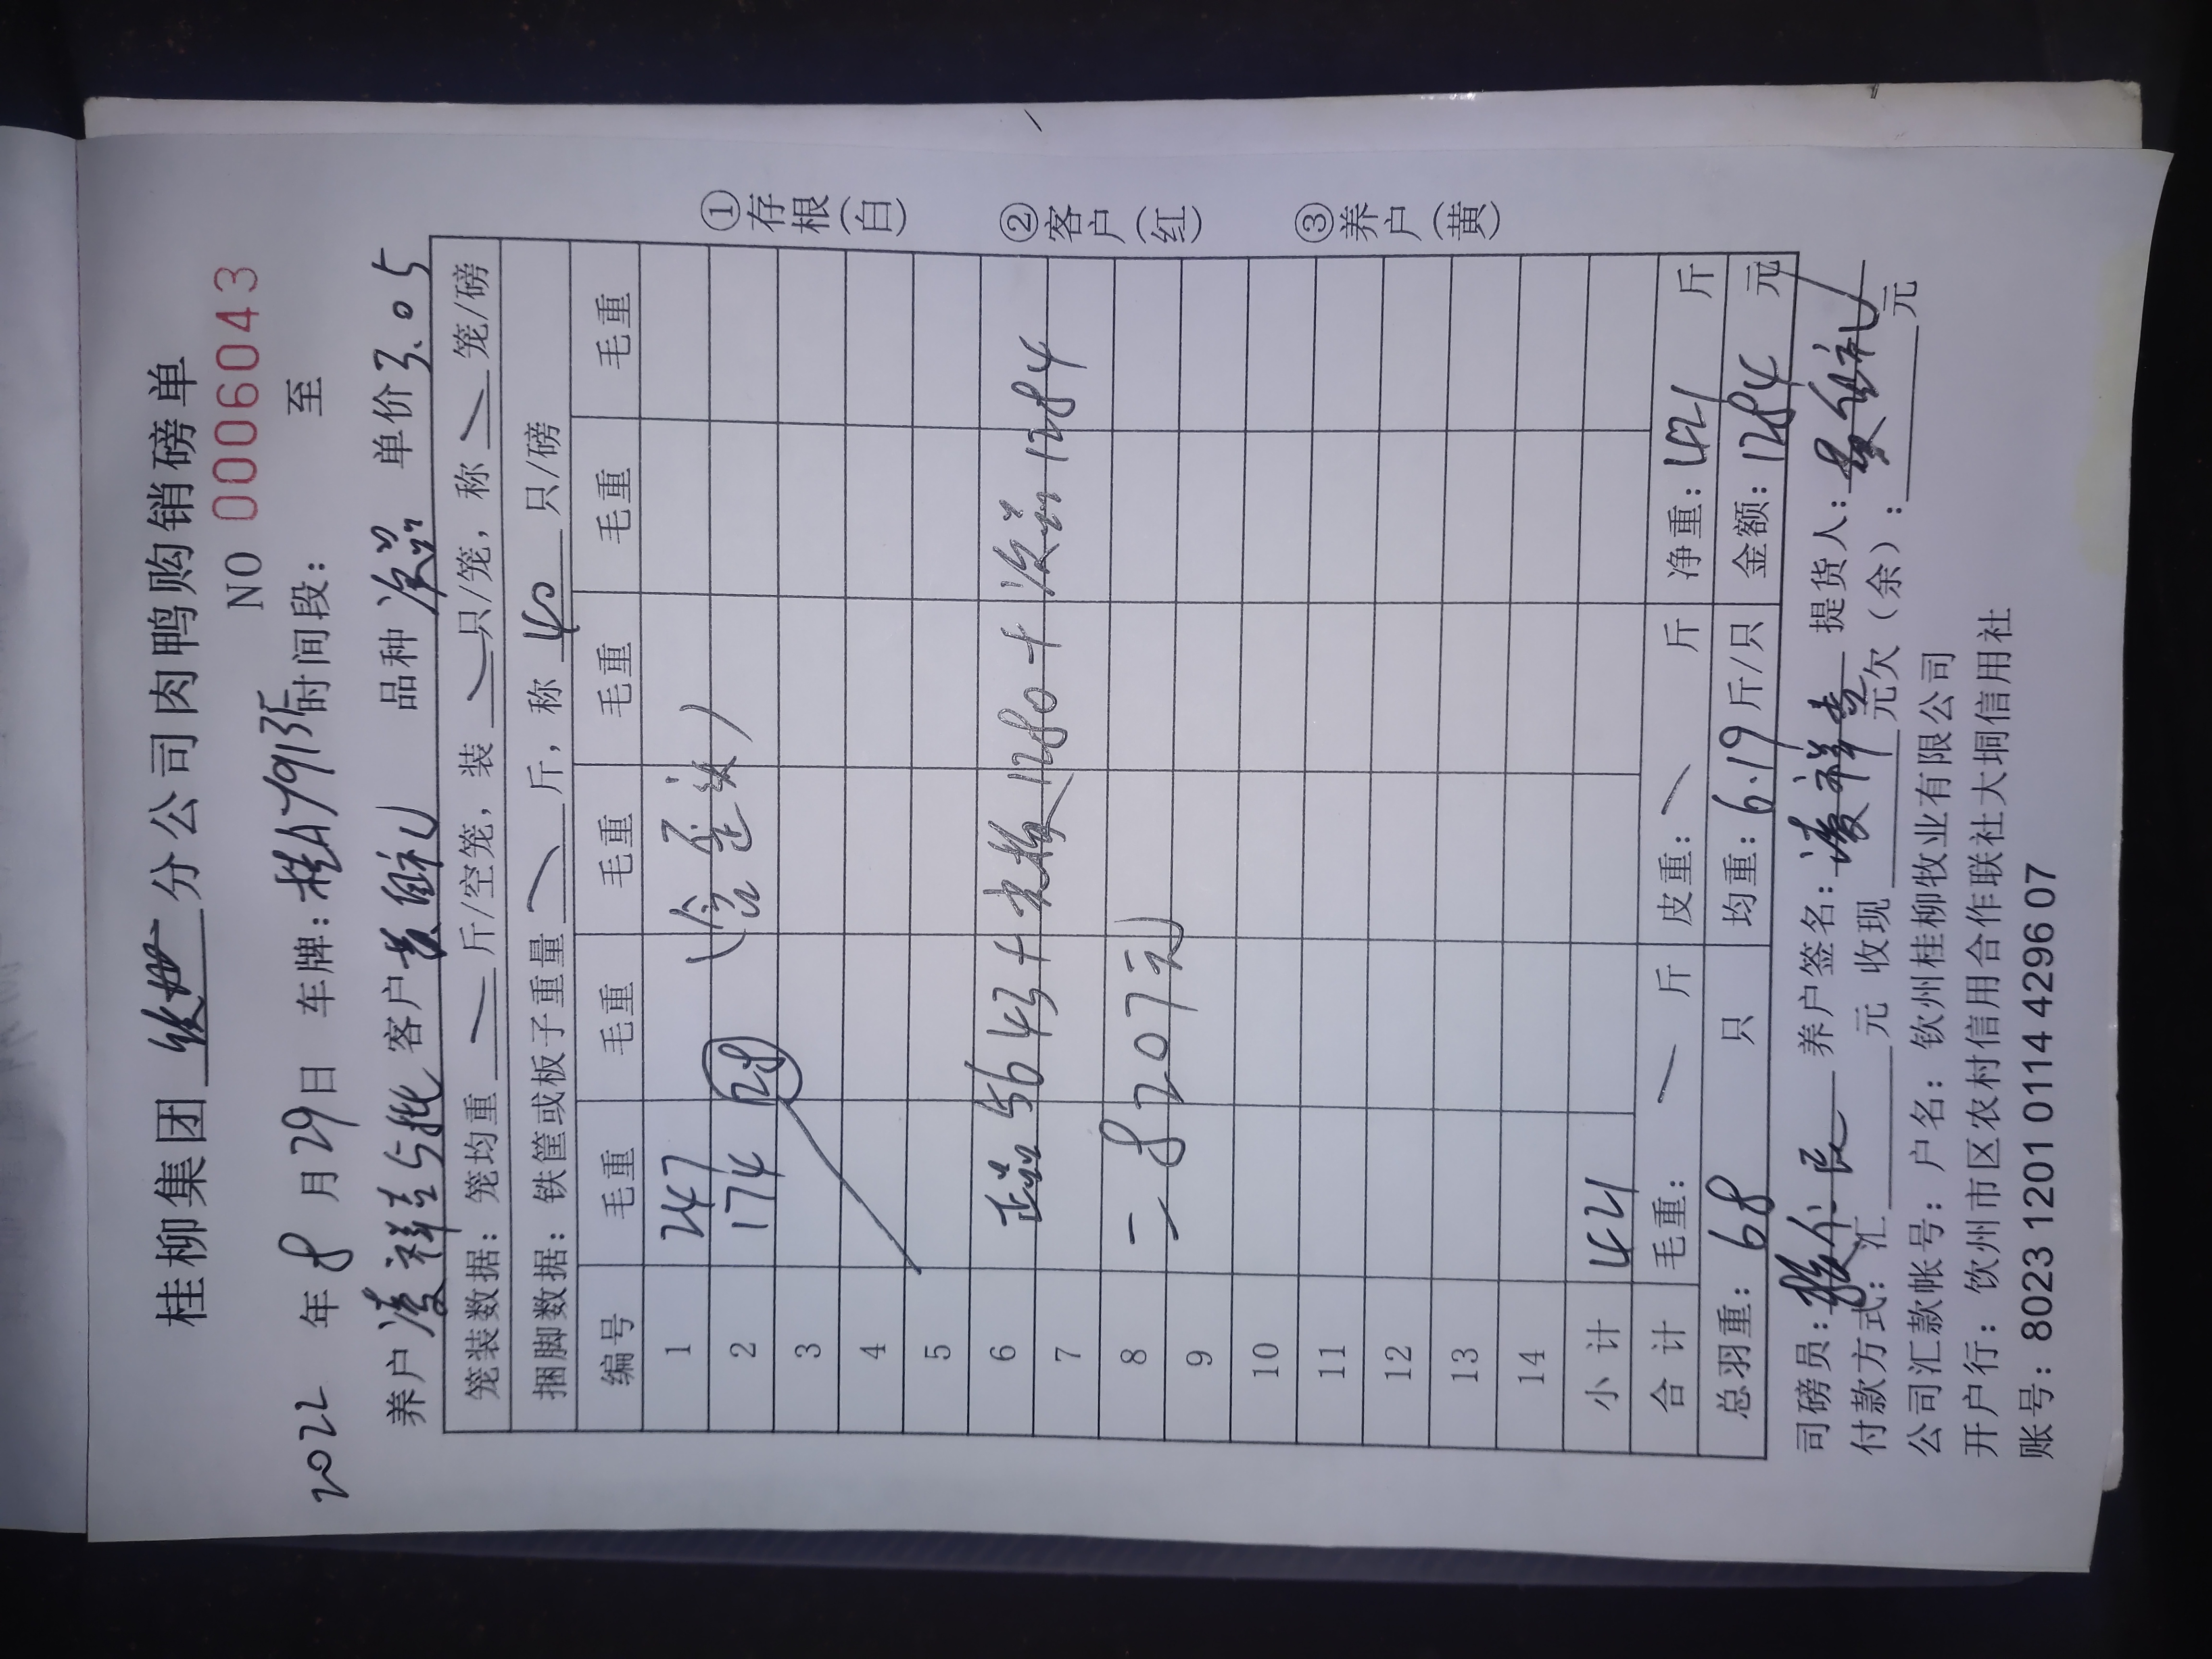 桂柳集团 分公司肉鸭购销磅单
NO 0006043
2022 年 8 月 29 日 车牌：桂A79135 时间段： 至
养户 凌祥吉5批 客户 黄 礼 品种 次品 单价 3.05
笼装数据：笼均重 / 斤/空笼，装 / 只/笼，称 / 笼/磅
捆脚数据：铁筐或板子重量 / 斤，称 40 只/磅
编号 毛重 毛重 毛重 毛重 毛重 毛重
1 247
2 174 28
3
4
5
6 正品5643+ 1280+次品1284
7
8 =8207元
9
10
11
12
13
14
小计 421
合计 毛重： / 斤 皮重： / 斤 净重：421 斤
总羽重：68 只 均重：6.19 斤/只 金额：1284 元
司磅员： 养户签名：凌祥吉 提货人：黄 礼
付款方式：汇 元 收现 元欠（余）： 元
公司汇款帐号：户名：钦州桂柳牧业有限公司
开户行：钦州市区农村信用合作联社大垌信用社
账号：8023 1201 0114 4296 07
①存根（白）
②客户（红）
③养户（黄）